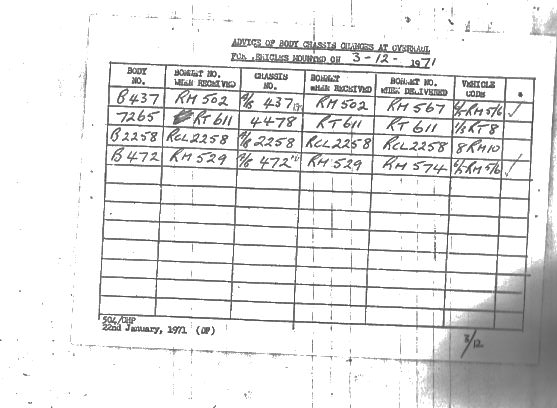 ADVICE OF BODY CHASSIS CHANGES AT OVERHAUL
FOR VEHICLES MOUNTED ON 3-12- 1971
BODY NO. BONNET NO. WHEN RECEIVED CHASSIS NO. BONNET WHEN RECEIVED BONNET NO. WHEN DELIVERED VEHICLE CODE *
B437 RM502 437 RM502 RM567 RM5/6 ✓
7265 RT611 4478 RT611 RT611 RT8
B2258 RCL2258 2258 RCL2258 RCL2258 8RM10
B472 RM529 472 RM529 RM574 RM5/6 ✓
504/DHP
22nd January, 1971 (OP)
3/12.